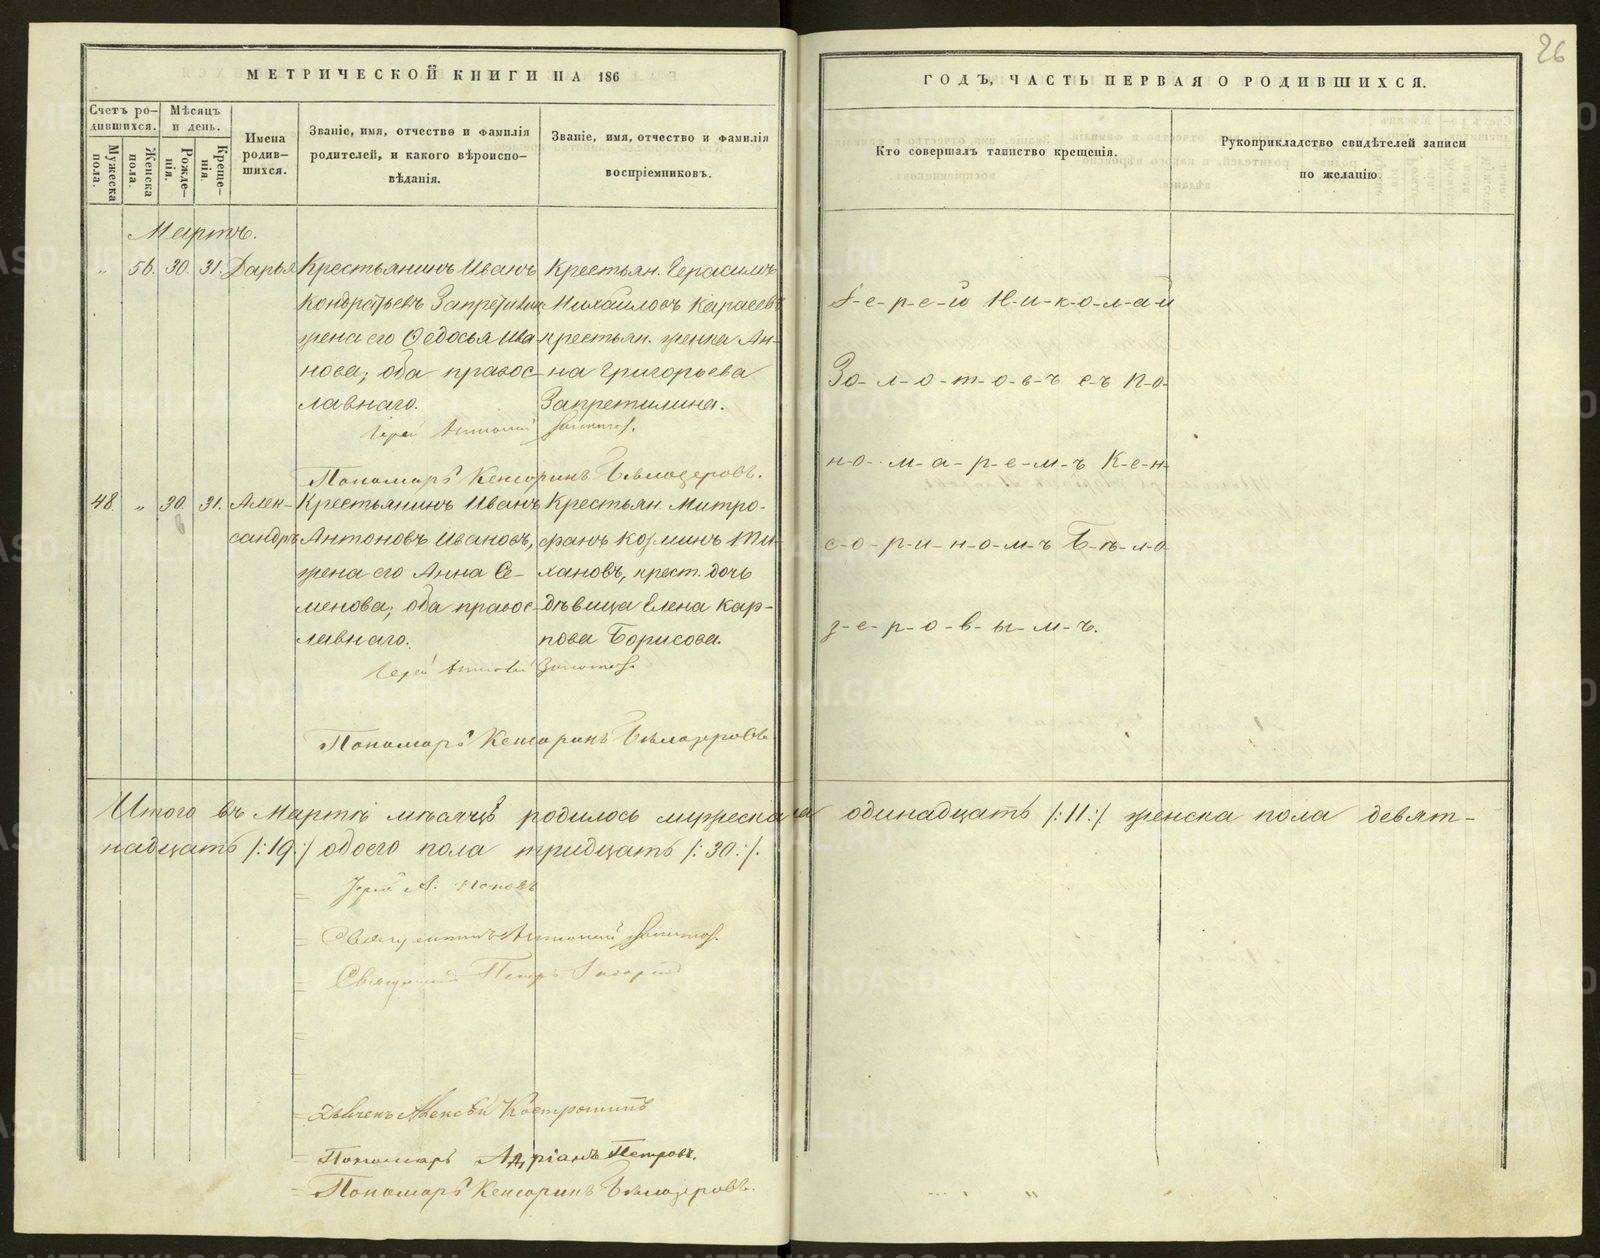 26
МЕТРИЧЕСКОЙ КНИГИ НА 186
ГОДЪ, ЧАСТЬ ПЕРВАЯ О РОДИВШИХСЯ.
Счетъ ро-
дившихся.
Мужеска пола.
Женска пола.
Мѣсяцъ
и день.
Рожде-
нія.
Креще-
нія.
Имена
родив-
шихся.
Званіе, имя, отчество и фамилія
родителей, и какого вѣроиспо-
вѣданія.
Званіе, имя, отчество и фамилія
воспріемниковъ.
Кто совершалъ таинство крещенія.
Рукоприкладство свидѣтелей записи
по желанію.
Мартъ.
„ 56. 30. 31. Дарья
Крестьянинъ Иванъ
Кондратьевъ Запретилинъ
жена его Ѳедосья Ива-
нова; оба правос-
лавнаго.
Крестьян. Герасимъ
Михайловъ Караевъ
крестьян. женка Ан-
на Григорьева
Запретилина.
Іерей Николай
Золотовъ съ по-
номаремъ Кен-
сориномъ Бѣло-
зеровымъ.
Іерей
Пономарь Кенсоринъ Бѣлозеровъ.
48. „ 30. 31. Алек-
сандръ
Крестьянинъ Иванъ
Антоновъ Ивановъ,
жена его Анна Се-
менова; оба правос-
лавнаго.
Крестьян. Митро-
фанъ Козминъ Ти-
хановъ, крест. дочь
дѣвица Елена Кар-
пова Борисова.
Іерей
Пономарь Кенсоринъ Бѣлозеровъ
Итого въ Мартѣ мѣсяцѣ родилось мужеска пола одинадцать /:11:/ женска пола девят-
надцать /:19:/ обоего пола тридцать /:30:/.
Іерей А. Поповъ
Священникъ
Священникъ Петръ
Дьячекъ Алексѣй Костромитъ
Пономарь Адріанъ Петровъ.
Пономарь Кенсоринъ Бѣлозеровъ.
METRIKI.GASO-URAL.RU